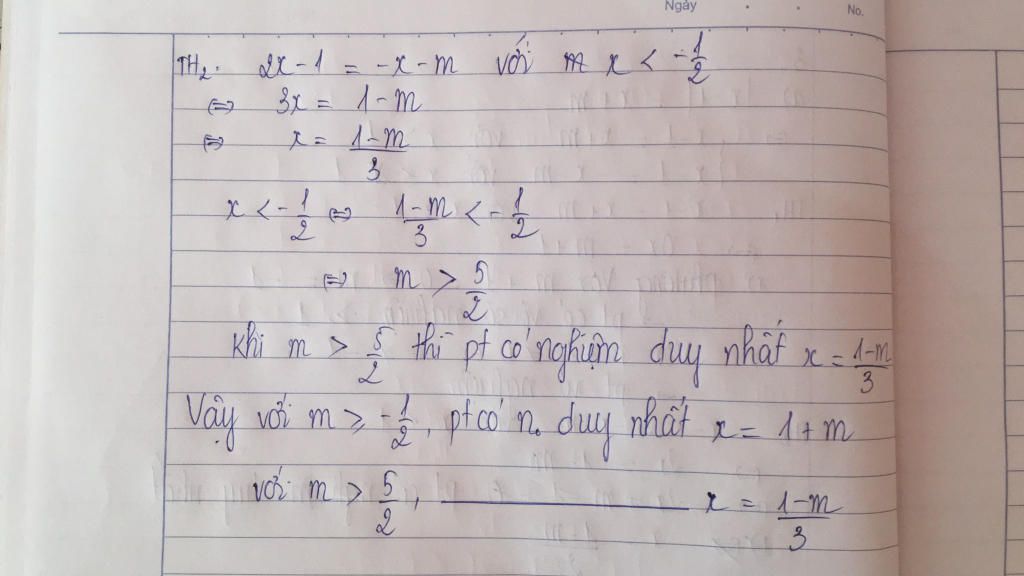 Ngày
No.
TH₂. 2x - 1 = -x - m với x < -1/2
⇔ 3x = 1 - m
⇔ x = (1-m)/3
x < -1/2 ⇔ (1-m)/3 < -1/2
⇔ m > 5/2
Khi m > 5/2 thì pt có nghiệm duy nhất x = (1-m)/3
Vậy với m ≥ -1/2, pt có n. duy nhất x = 1 + m
với m > 5/2, ———— x = (1-m)/3